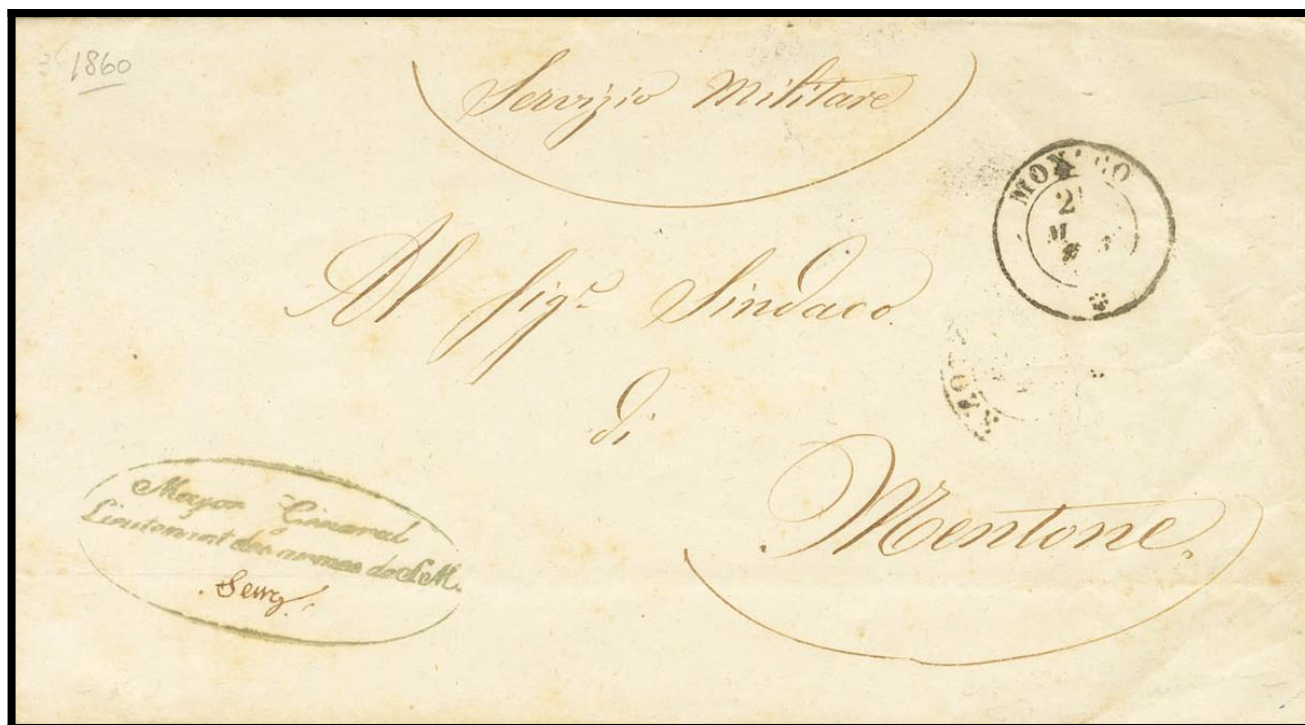 1860
Servizio Militare
MONACO
2
M
Al Sigr. Sindaco
di
Mentone.
Mayor Géneral
Lieutennat des armes de S.M.